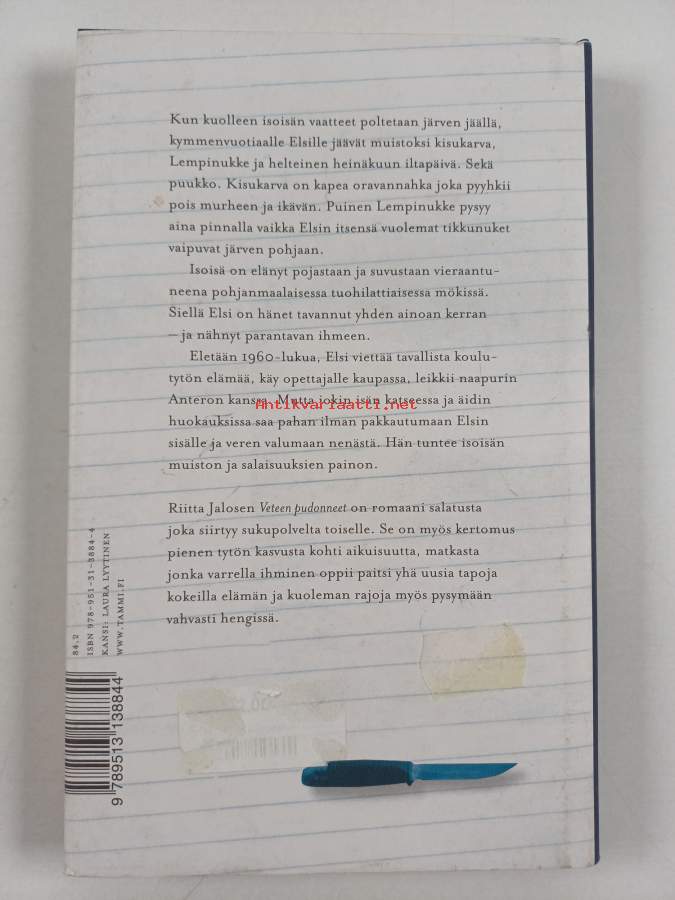 Kun kuolleen isoisän vaatteet poltetaan järven jäällä,
kymmenvuotiaalle Elsille jäävät muistoksi kisukarva,
Lempinukke ja helteinen heinäkuun iltapäivä. Sekä
puukko. Kisukarva on kapea oravannahka joka pyyhkii
pois murheen ja ikävän. Puinen Lempinukke pysyy
aina pinnalla vaikka Elsin itsensä vuolemat tikkunuket
vaipuvat järven pohjaan.
Isoisä on elänyt pojastaan ja suvustaan vieraantu-
neena pohjanmaalaisessa tuohilattiaisessa mökissä.
Siellä Elsi on hänet tavannut yhden ainoan kerran
–ja nähnyt parantavan ihmeen.
Eletään 1960-lukua, Elsi viettää tavallista koulu-
tytön elämää, käy opettajalle kaupassa, leikkii naapurin
Anteron kanssa. Mutta jokin isän katseessa ja äidin
Antikvariaatti.net
huokauksissa saa pahan ilman pakkautumaan Elsin
sisälle ja veren valumaan nenästä. Hän tuntee isoisän
muiston ja salaisuuksien painon.
Riitta Jalosen Veteen pudonneet on romaani salatusta
joka siirtyy sukupolvelta toiselle. Se on myös kertomus
pienen tytön kasvusta kohti aikuisuutta, matkasta
jonka varrella ihminen oppii paitsi yhä uusia tapoja
kokeilla elämän ja kuoleman rajoja myös pysymään
vahvasti hengissä.
84.2
ISBN 978-951-31-3884-4
KANSI: LAURA LYYTINEN
WWW.TAMMI.FI
9 789513 138844